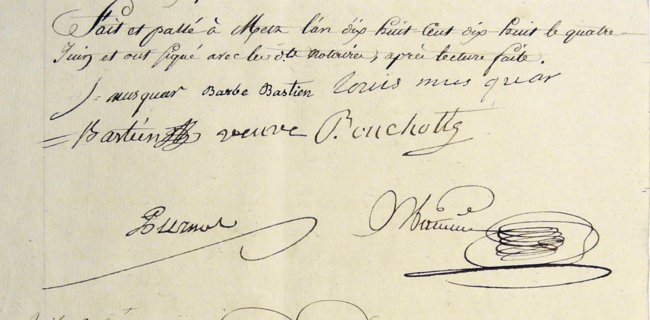 Fait et passé à Metz l'an dix huit cent dix huit le quatre
Juin et ont signé avec les dts notaires, après lecture faite.
J. musquar Barbe Bastien Louis mus quar
Bastien veuve Bouchotte
Purnot